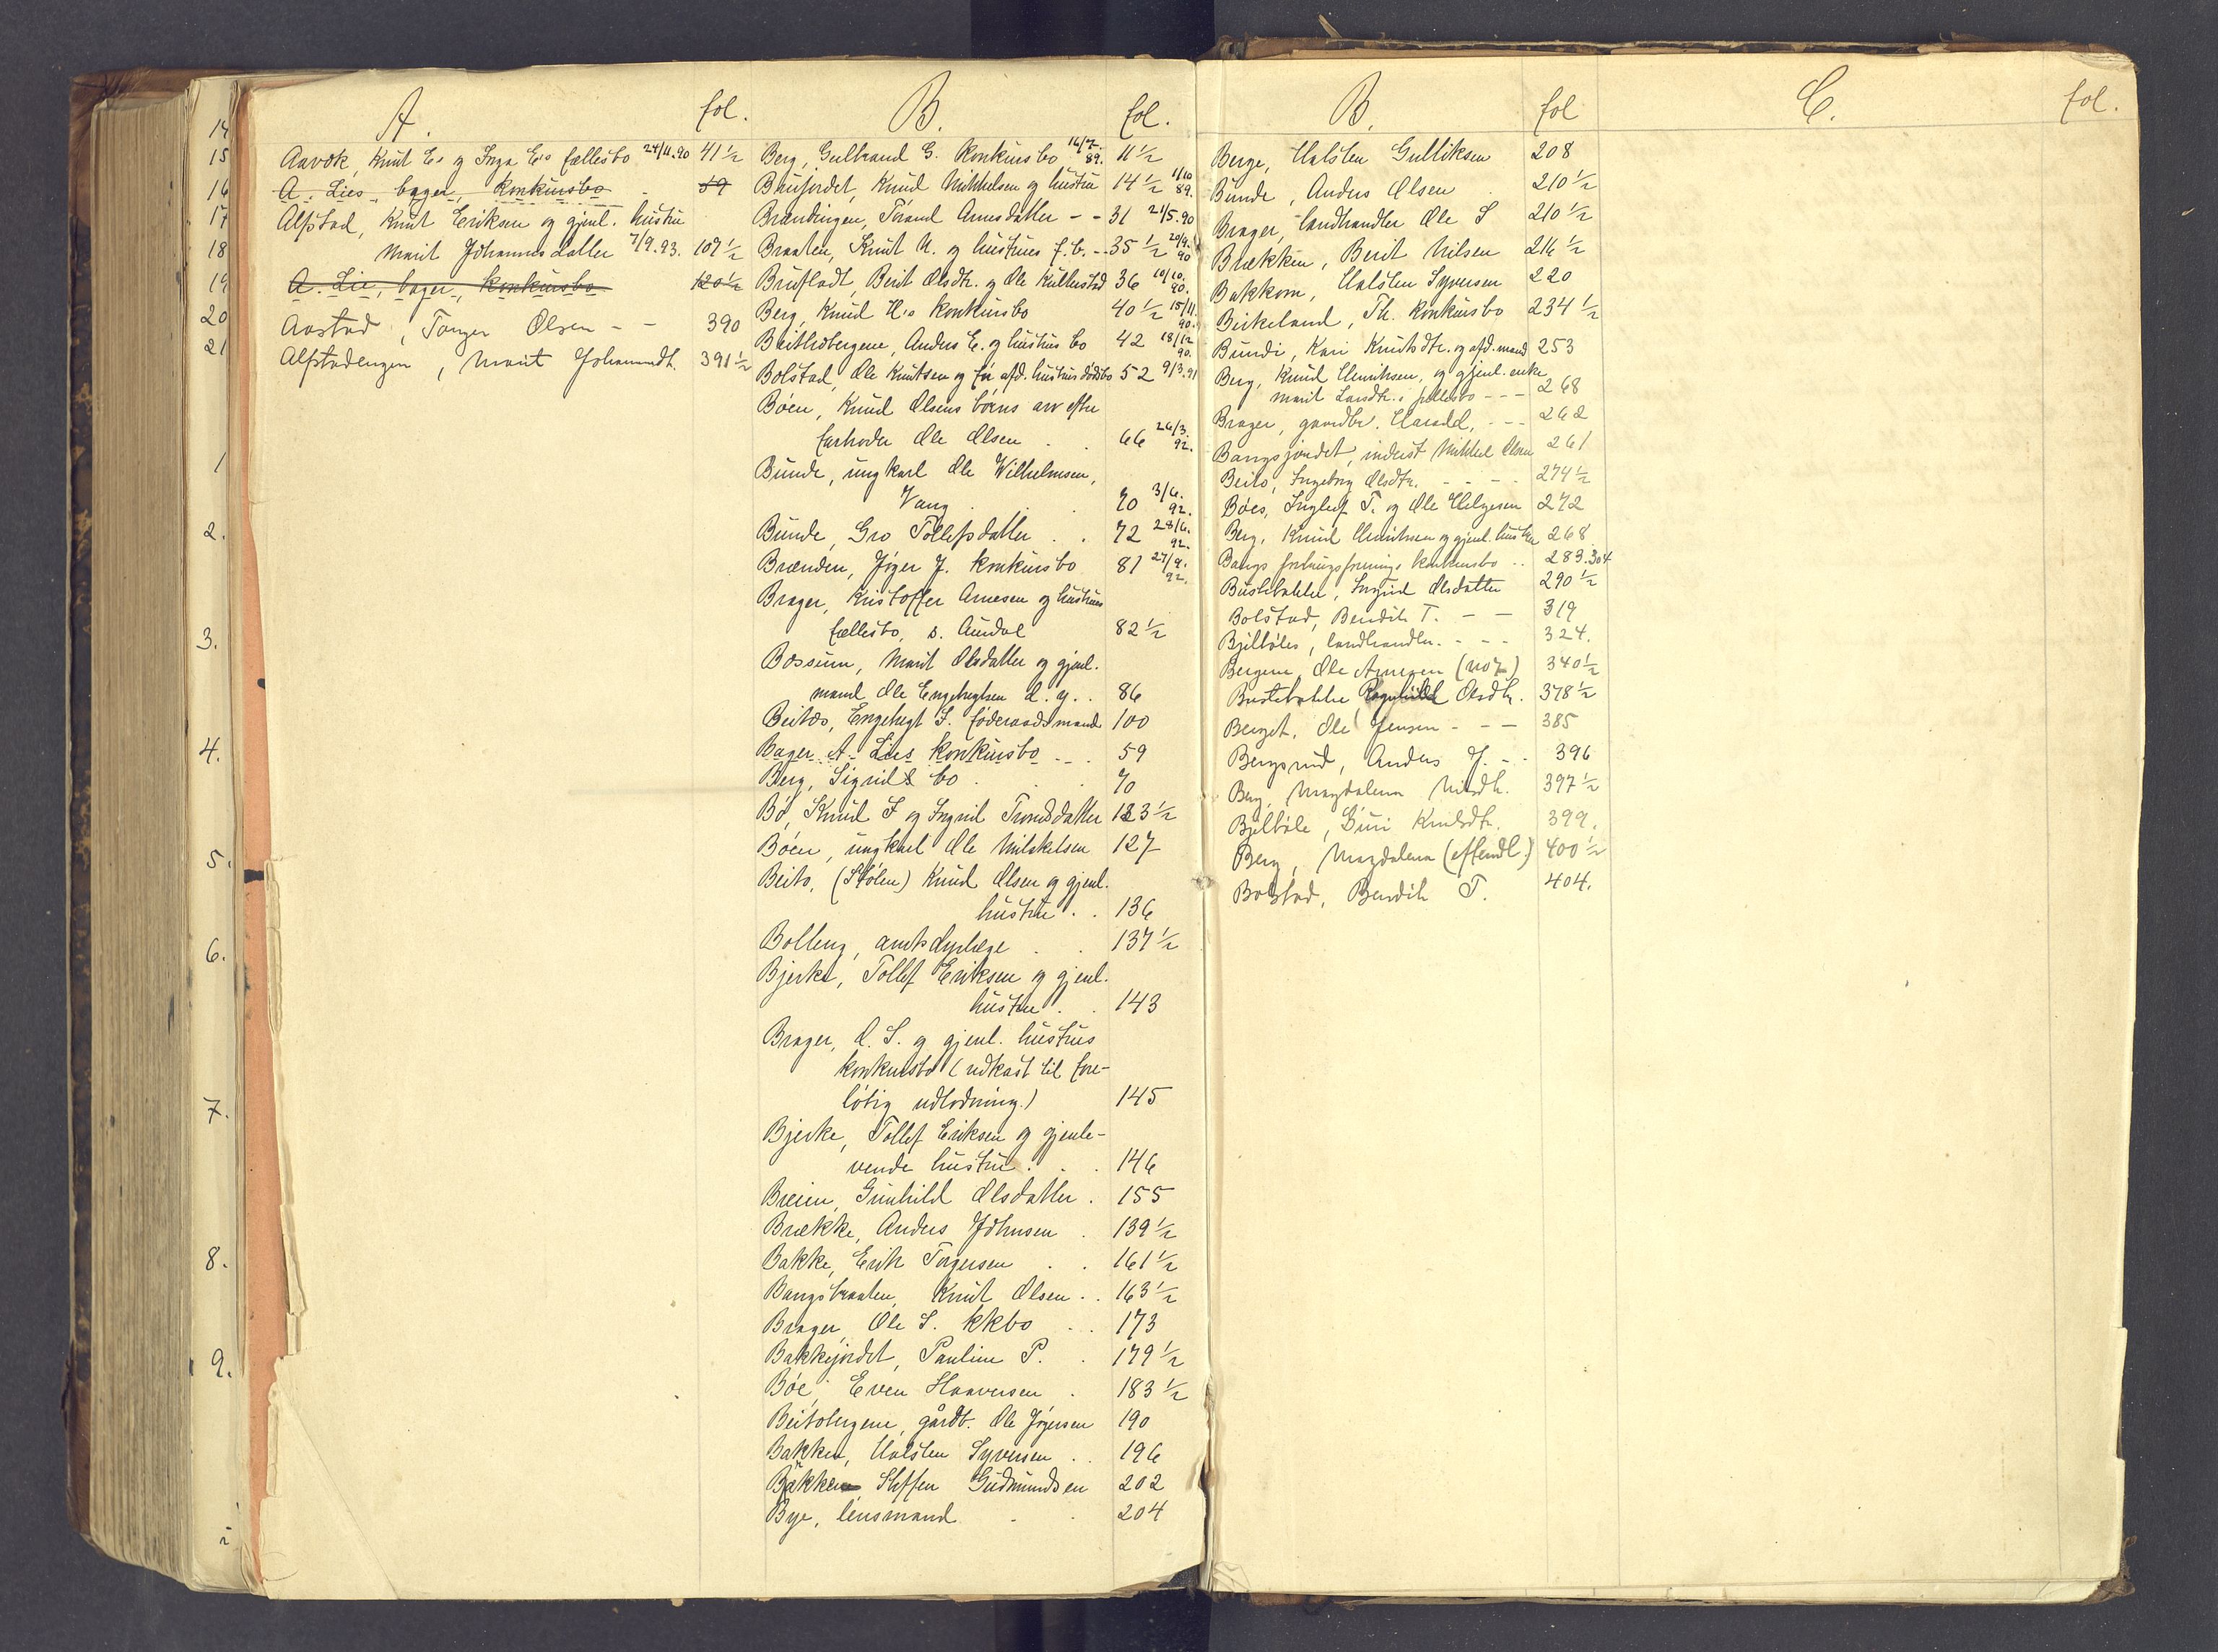 A.
fol.
Aavok, Knut E. og Inga E's fællesbo 24/11.90 41 1/2
A. Lies, bager, konkursbo 59
Alfstad, Knut Eriksen og gjenl. hustru
Marit Johannesdatter 7/9.93. 107 1/2
A. Lie, bager, konkursbo 120 1/2
Aastad, Torger Olsen - - 390
Alfstadengen, Marit Johannesdt. 391 1/2
14
15
16
17
18
19
20
21
1
2.
3.
4.
5.
6.
7.
8.
9.
B.
fol.
Berg, Gulbrand G. konkursbo 11 1/2 16/7. 89.
Brujordet, Knud Mikkelsen og hustru 14 1/2 1/10 89.
Brændingen, Tørand Arnesdatter - - 31 21/5.90
Braaten, Knut N. og hustrues f.b. - - 35 1/2 20/9. 90
Brufladt, Berit Olsdtr. og Ole Kullestad 36 10/10. 90.
Berg, Knud H's konkursbo 40 1/2 15/11. 90.
Beithobergene, Anders E. og hustrus bo 42 18/12 90.
Bolstad, Ole Knutsen og før afd. hustrus dødsbo 52 9/3.91
Bøen, Knud Olsens børns arv efter
farbroder Ole Olsen . . 66 26/3. 92.
Bunde, ungkarl Ole Wilhelmsen,
Vang . . . 70 3/6. 92.
Bunde, Gro Tollefsdatter . . 72 28/6. 92.
Brænden, Jøger J. konkursbo 81 27/9. 92.
Brager, Kristoffer Arnesen og hustrues
fællesbo, s. Aurdal 82 1/2
Bøssum, Marit Olsdatter og gjenl.
mand Ole Engebregtsen d. y. . . 86
Beitos, Engebregt S. føderaadsmand 100
Bager A. Lies konkursbo . . . 59
Berg, Sigrids bo . . . 70
Bø, Knud I og Ingrid Trondsdatter 123 1/2
Bøen, ungkarl Ole Mikkelsen 127
Beito, (Stølen) Knud Olsen og gjenl.
hustru . . 136
Bolleng, amtsdyrlæge . . 137 1/2
Bjerke, Tollef Eriksen og gjenl.
hustru . . 143
Brager, O. S. og gjenl. hustrus
konkursbo (udkast til fore-
løbig udlodning.) 145
Bjerke, Tollef Eriksen og gjenle-
vende hustru . . . 146
Breien, Gunhild Olsdatter . 155
Brække, Anders Johnsen . 139 1/2
Bakke, Erik Torgersen . . 161 1/2
Bangsbraaten, Knut Olsen . . 163 1/2
Brager, Ole S. kkbo . . . 173
Bakkejordet, Pauline P. . 179 1/2
Bøe, Even Haaversen . 183 1/2
Beitobergene, gårdb. Ole Jøgersen 190
Bakken, Halsten Syversen . . 196
Bækken, Steffen Gudmundsen 202
Bye, lensmand . . 204
B.
fol
Berge, Halsten Gulliksen 208
Bunde, Anders Olsen . 210 1/2
Brager, landhandler Ole S 210 1/2
Brækken, Berit Nilsen 216 1/2
Bakkom, Halsten Syversen 220
Birkeland, Th. konkursbo 234 1/2
Bundi, Kari Knutsdtr. og afd. mand 253
Berg, Knud Henriksen, og gjenl. enke
Marit Larsdtr.s fællesbo - - - 268
Brager, gaardbr. Harald. - - - 262
Bangsjordet, inderst Mikkel Olsen 261
Beito, Ingeborg Olsdtr. - - - - 274 1/2
Bøes, Ingleif T. og Ole Helgesen 272
Berg, Knud Henriksen og gjenl. hustru 268
Bangs forbrugsforenings konkursbo . . 283.304
Bustebakke, Ingrid Olsdatter 290 1/2
Bolstad, Bendik T. - - 319
Bjelbøles, landhandler. - - - 324.
Bergene, Ole Arnesen 340 1/2
Bustebakke Ragnhild Olsdtr. 378 1/2
Berget, Ole Jensen - - - 385
Bergsrud, Anders J. - - 396
Berg, Magdalena Nilsdtr. 397 1/2
Bjelbøle, Guri Knudsdtr. 399.
Berg, Magdalena 400 1/2
Bolstad, Bendik T. 404.
C.
fol.